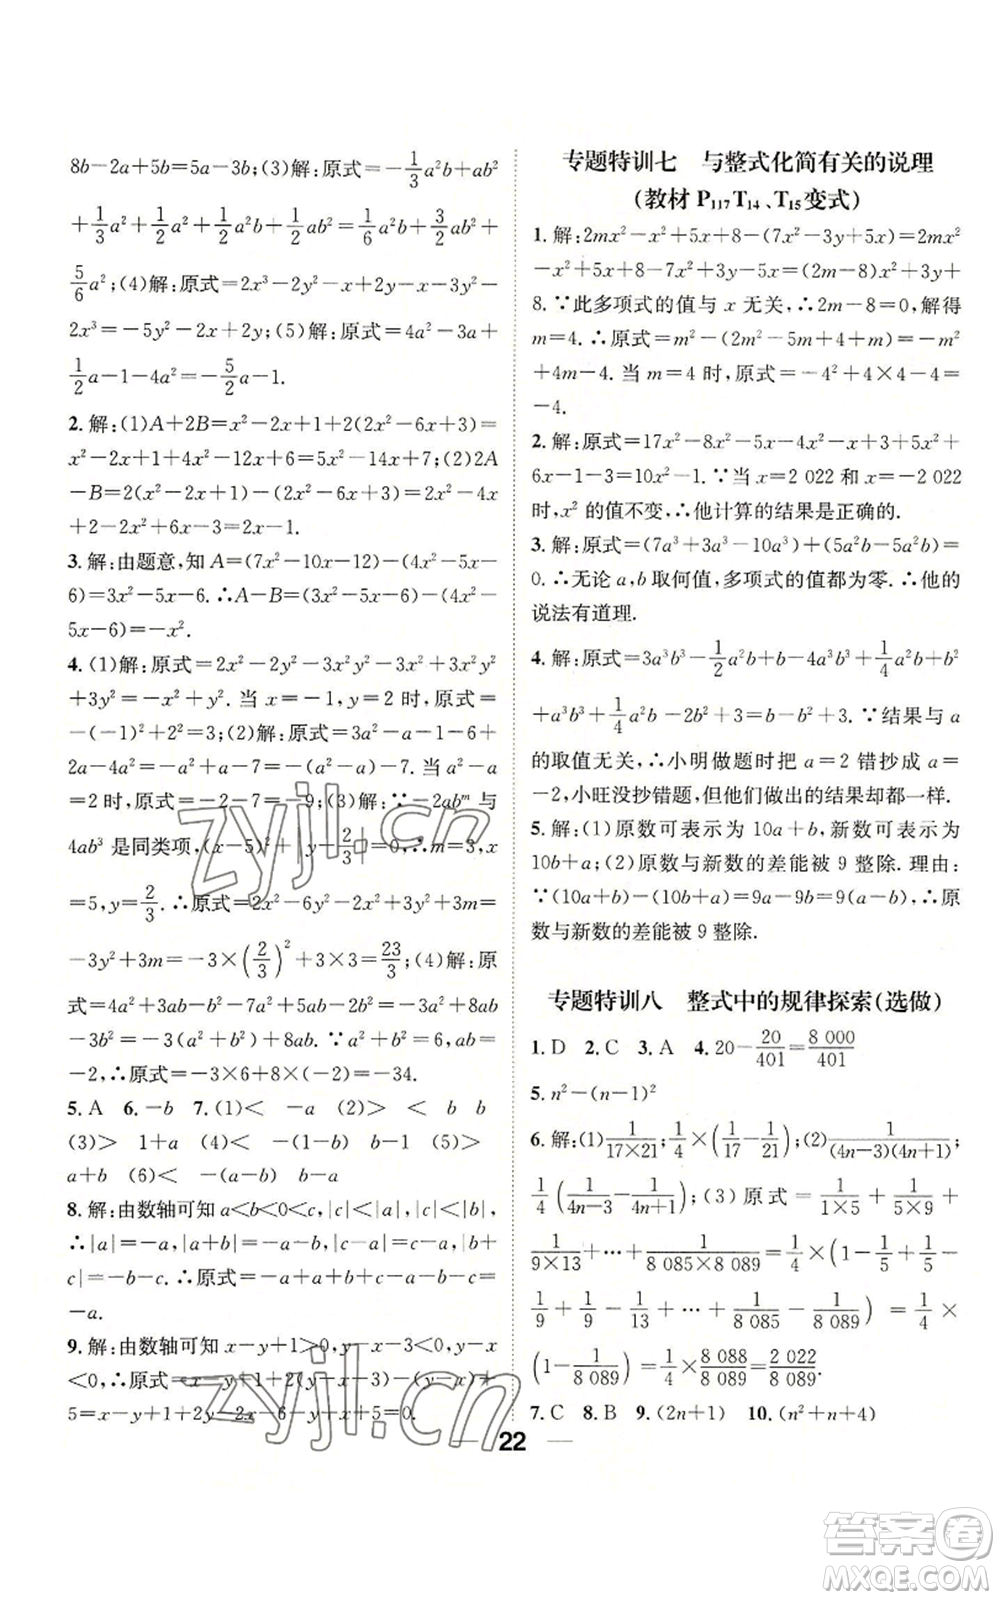 8b-2a+5b=5a-3b;(3)解:原式=-1/3a²b+ab²
+1/3a²+1/2a²+1/2a²b-ab²=1/6a²b+3/2ab²+
5/6a²;(4)解:原式=2x³-2y²-x+2y-x-3y²-
2x³=-5y²-2x+2y;(5)解:原式=4a²-3a+
1/2a-1-4a²=-5/2a-1.
2.解:(1)A+2B=x²-2x+1+2(2x²-6x+3)=
x²-2x+1+4x²-12x+6=5x²-14x+7;(2)2A
-B=2(x²-2x+1)-(2x²-6x+3)=2x²-4x
+2-2x²+6x-3=2x-1.
3.解:由题意,知A=(7x²-10x-12)-(4x²-
5x-6)=3x²-5x-6.∴A-B=(3x²-5x-6)-(4x²-
5x-6)=-x².
4.(1)解:原式=2x²-2y²-3x²y²-3x²+3x²y²
+3y²=-x²+y².当x=-1,y=2时,原式=
-(-1)²+2²=3;(2)解:原式=3a²-a-1-6+
2a-4a²=-a²+a-7=-(a²-a)-7.当a²-a
=2时,原式=-2-7=-9;(3)解:∵-2abᵐ与
4ab³是同类项,(x-5)²+|y-2/3|=0,∴m=3,x
=5,y=2/3.∴原式=2x²-6x²-3y²+4x²+3m=
-3y²+3m=-3×(2/3)²+3×3=23/3;(4)解:原
式=4a²+3ab-b²-7a²-7ab-2b²+4ab=-3a²
-3b²=-3(a²+b²).当a²+b²=6×5-(-2)²... ab=
-2,∴原式=-3×6+8×(-2)=-34.
5.A 6.-b 7.(1)< -a (2)> < b b
(3)> 1+a (4)< -b-1 b-1 (5)>
a+b (6)< -(a-b) b-a
8.解:由数轴可知a<b<0<c,|c|<|a|,|c|<|b|,
∴|a|=-a,|a+b|=-a-b,|c-a|=c-a,|b+
c|=-b-c.∴原式=-a+a+b+c-a-b-c=
-a.
9.解:由数轴可知x-y+1>0,y-3<0,y-x
<0,∴原式=x-y+1+2(y-3)-(y-x)+
5=x-y+1+2y-2x-6-y+x+5=0.
专题特训七 与整式化简有关的说理
(教材P₁₁₇T₁₄、T₁₅变式)
1.解:2mx²-x²+5x+8-(7x²-3y+5x)=2mx²
-x²+5x+8-7x²+3y-5x=(2m-8)x²+3y+
8.∵此多项式的值与x无关,∴2m-8=0,解得
m=4.∴原式=m²-(2m²-5m+4+m)=-m²
+4m-4.当m=4时,原式=-4²+4×4-4=
-4.
2.解:原式=17x²-8x²-5x-4x²-x+3-5x²+6
x-1-3=10x²-1.∵当x=2 022和x=-2 022
时,x²的值不变,∴他计算的结果是正确的.
3.解:原式=(7a³+3a³-10a³)+(5a²b-5a²b)=
0.∴无论a,b取何值,多项式的值都为零.∴他的
说法有道理.
4.解:原式=3a³b³-1/2a²b+b-4a³b³+1/4a²b+b²
+a³b³+1/4a²b-2b²+3=b-b²+3.∵结果与a
的取值无关,∴小明做题时把a=2错抄成a=
-2,小旺没抄错题,但他们做出的结果却都一样.
5.解:(1)原数可表示为10a+b,新数可表示为
10b+a;(2)原数与新数的差能被9整除.理由:
∵(10a+b)-(10b+a)=9a-9b=9(a-b),∴原
数与新数的差能被9整除.
专题特训八 整式中的规律探索(选做)
1.D 2.C 3.A 4.20-20/401=8 000/401
5.n²-(n-1)²
6.解:(1)1/(17×21);1/4×(1/17-1/21);(2)1/((4n-3)(4n+1));
1/4(1/(4n-3)-1/(4n+1));(3)原式=1/(1×5)+1/(5×9)+
1/(9×13)+…+1/(8 085×8 089)=1/4×(1-1/5+1/5-
1/9+1/9-1/13+…+1/8 085-1/8 089)=1/4×
(1-1/8 089)=1/4×8 088/8 089=2 022/8 089.
7.C 8.B 9.(2n+1) 10.(n²+n+4)
22
zyjl.cn
zyjl.cn
答案圈
MXQE.COM